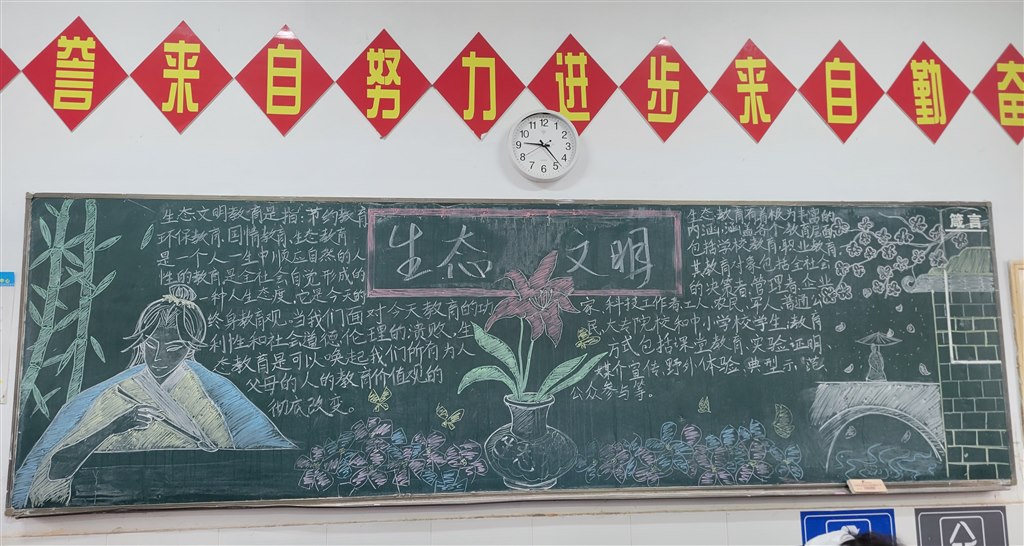 誉来自努力进步来自勤奋
12
1
2
3
4
5
6
7
8
9
10
11
生态文明
箴言
生态文明教育是指:节约教育
环保教育、国情教育、生态教育
是一个人一生中顺应自然的人
性的教育,是全社会自觉形成的
一种人生态度,它是今天的
终身教育观。当我们面对今天教育的功
利性和社会道德伦理的溃败,生
态教育是可以唤起我们所有为人
父母的人的教育价值观的
彻底改变。
生态教育有着极为丰富的
内涵,涵盖各个教育层面
包括学校教育,职业教育,
其教育对象包括全社会
的决策者、管理者、企业
家、科技工作者、工人、农民、军人、普通公
民、大专院校和中、小学校学生;教育
方式包括课堂教育、实验证明、
媒介宣传、野外体验、典型示范
公众参与等。